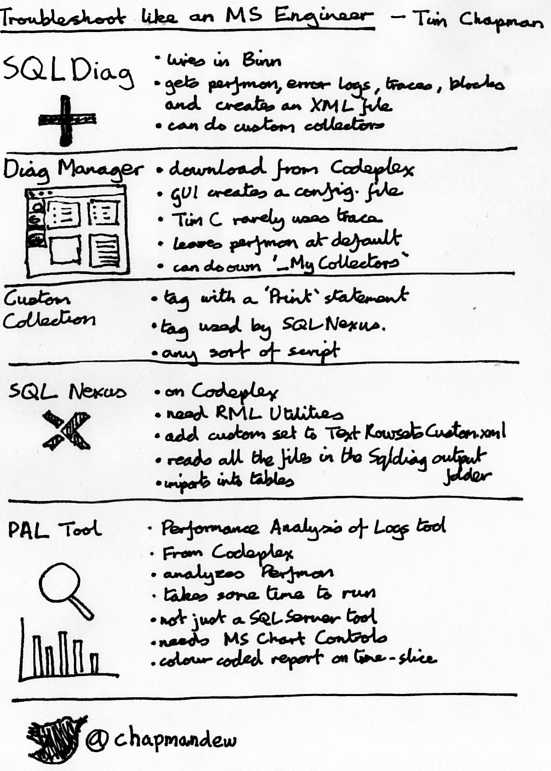 Troubleshoot like an MS Engineer - Tim Chapman
SQLDiag
• lives in Binn
• gets perfmon, error logs, traces, blocks
and creates an XML file
• can do custom collectors
Diag Manager
• download from Codeplex
• GUI creates a config. file
• Tim C rarely uses trace
• leaves perfmon at default
• can do own '_MyCollectors'
Custom
Collection
• tag with a 'Print' statement
• tag used by SQLNexus.
• any sort of script
SQL Nexus
• on Codeplex
• need RML Utilities
• add custom set to TextRowsetsCustom.xml
• reads all the files in the Sqldiag output
folder
• imports into tables
PAL Tool
• Performance Analysis of Logs tool
• From Codeplex
• analyzes Perfmon
• takes some time to run
• not just a SQL Server tool
• needs MS Chart Controls
• colour coded report on time-slice
@chapmandew